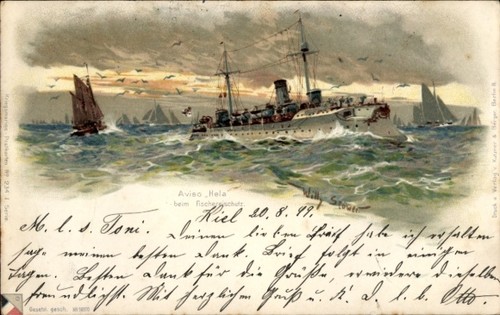 Aviso „Hela"
beim Fischereischutz.
Willy Stöwer
Kiel 20.8.99.
M. l. s. Toni.
Deinen lieben Brief habe ich erhalten
sage meinen besten Dank. Brief folgt in einigen
Tagen. Besten Dank für die Grüße, erwidere dieselben
freundlichst. Mit herzlichen Gruß u. K. D. l. b. Otto
Gesetzl. gesch.